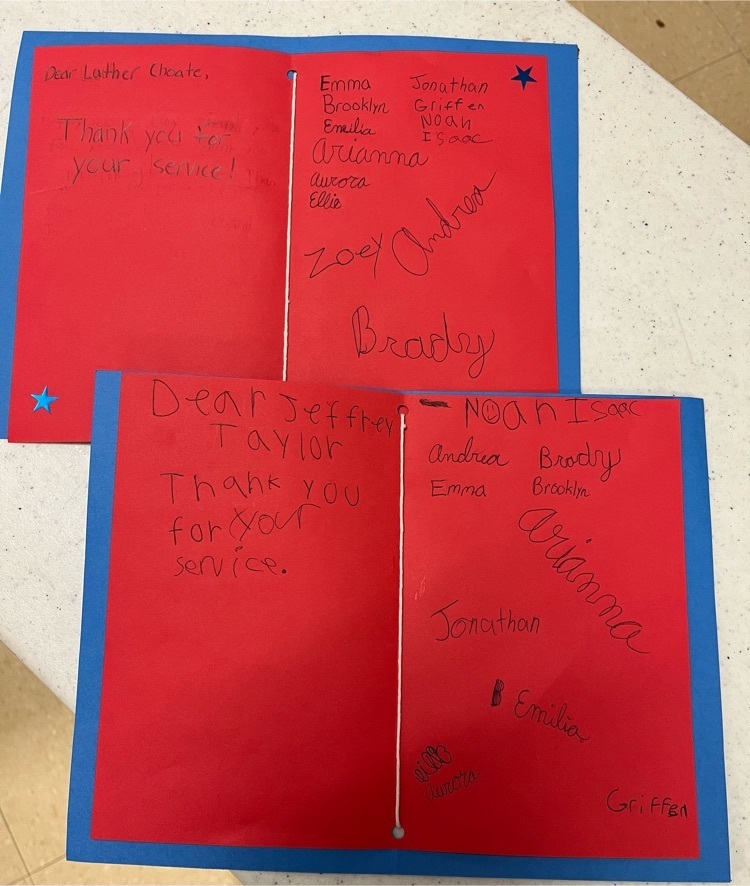 Dear Luther Choate,
Thank you for
your service!
Emma Jonathan
Brooklyn Griffen
Emilia Noah
Isaac
Arianna
Aurora
Ellie
Zoey Andrea
Brady
Dear Jeffrey
Taylor
Thank you
for your
service.
- Noah Isaac
Andrea Brady
Emma Brooklyn
Arianna
Jonathan
Emilia
Aurora
Griffen